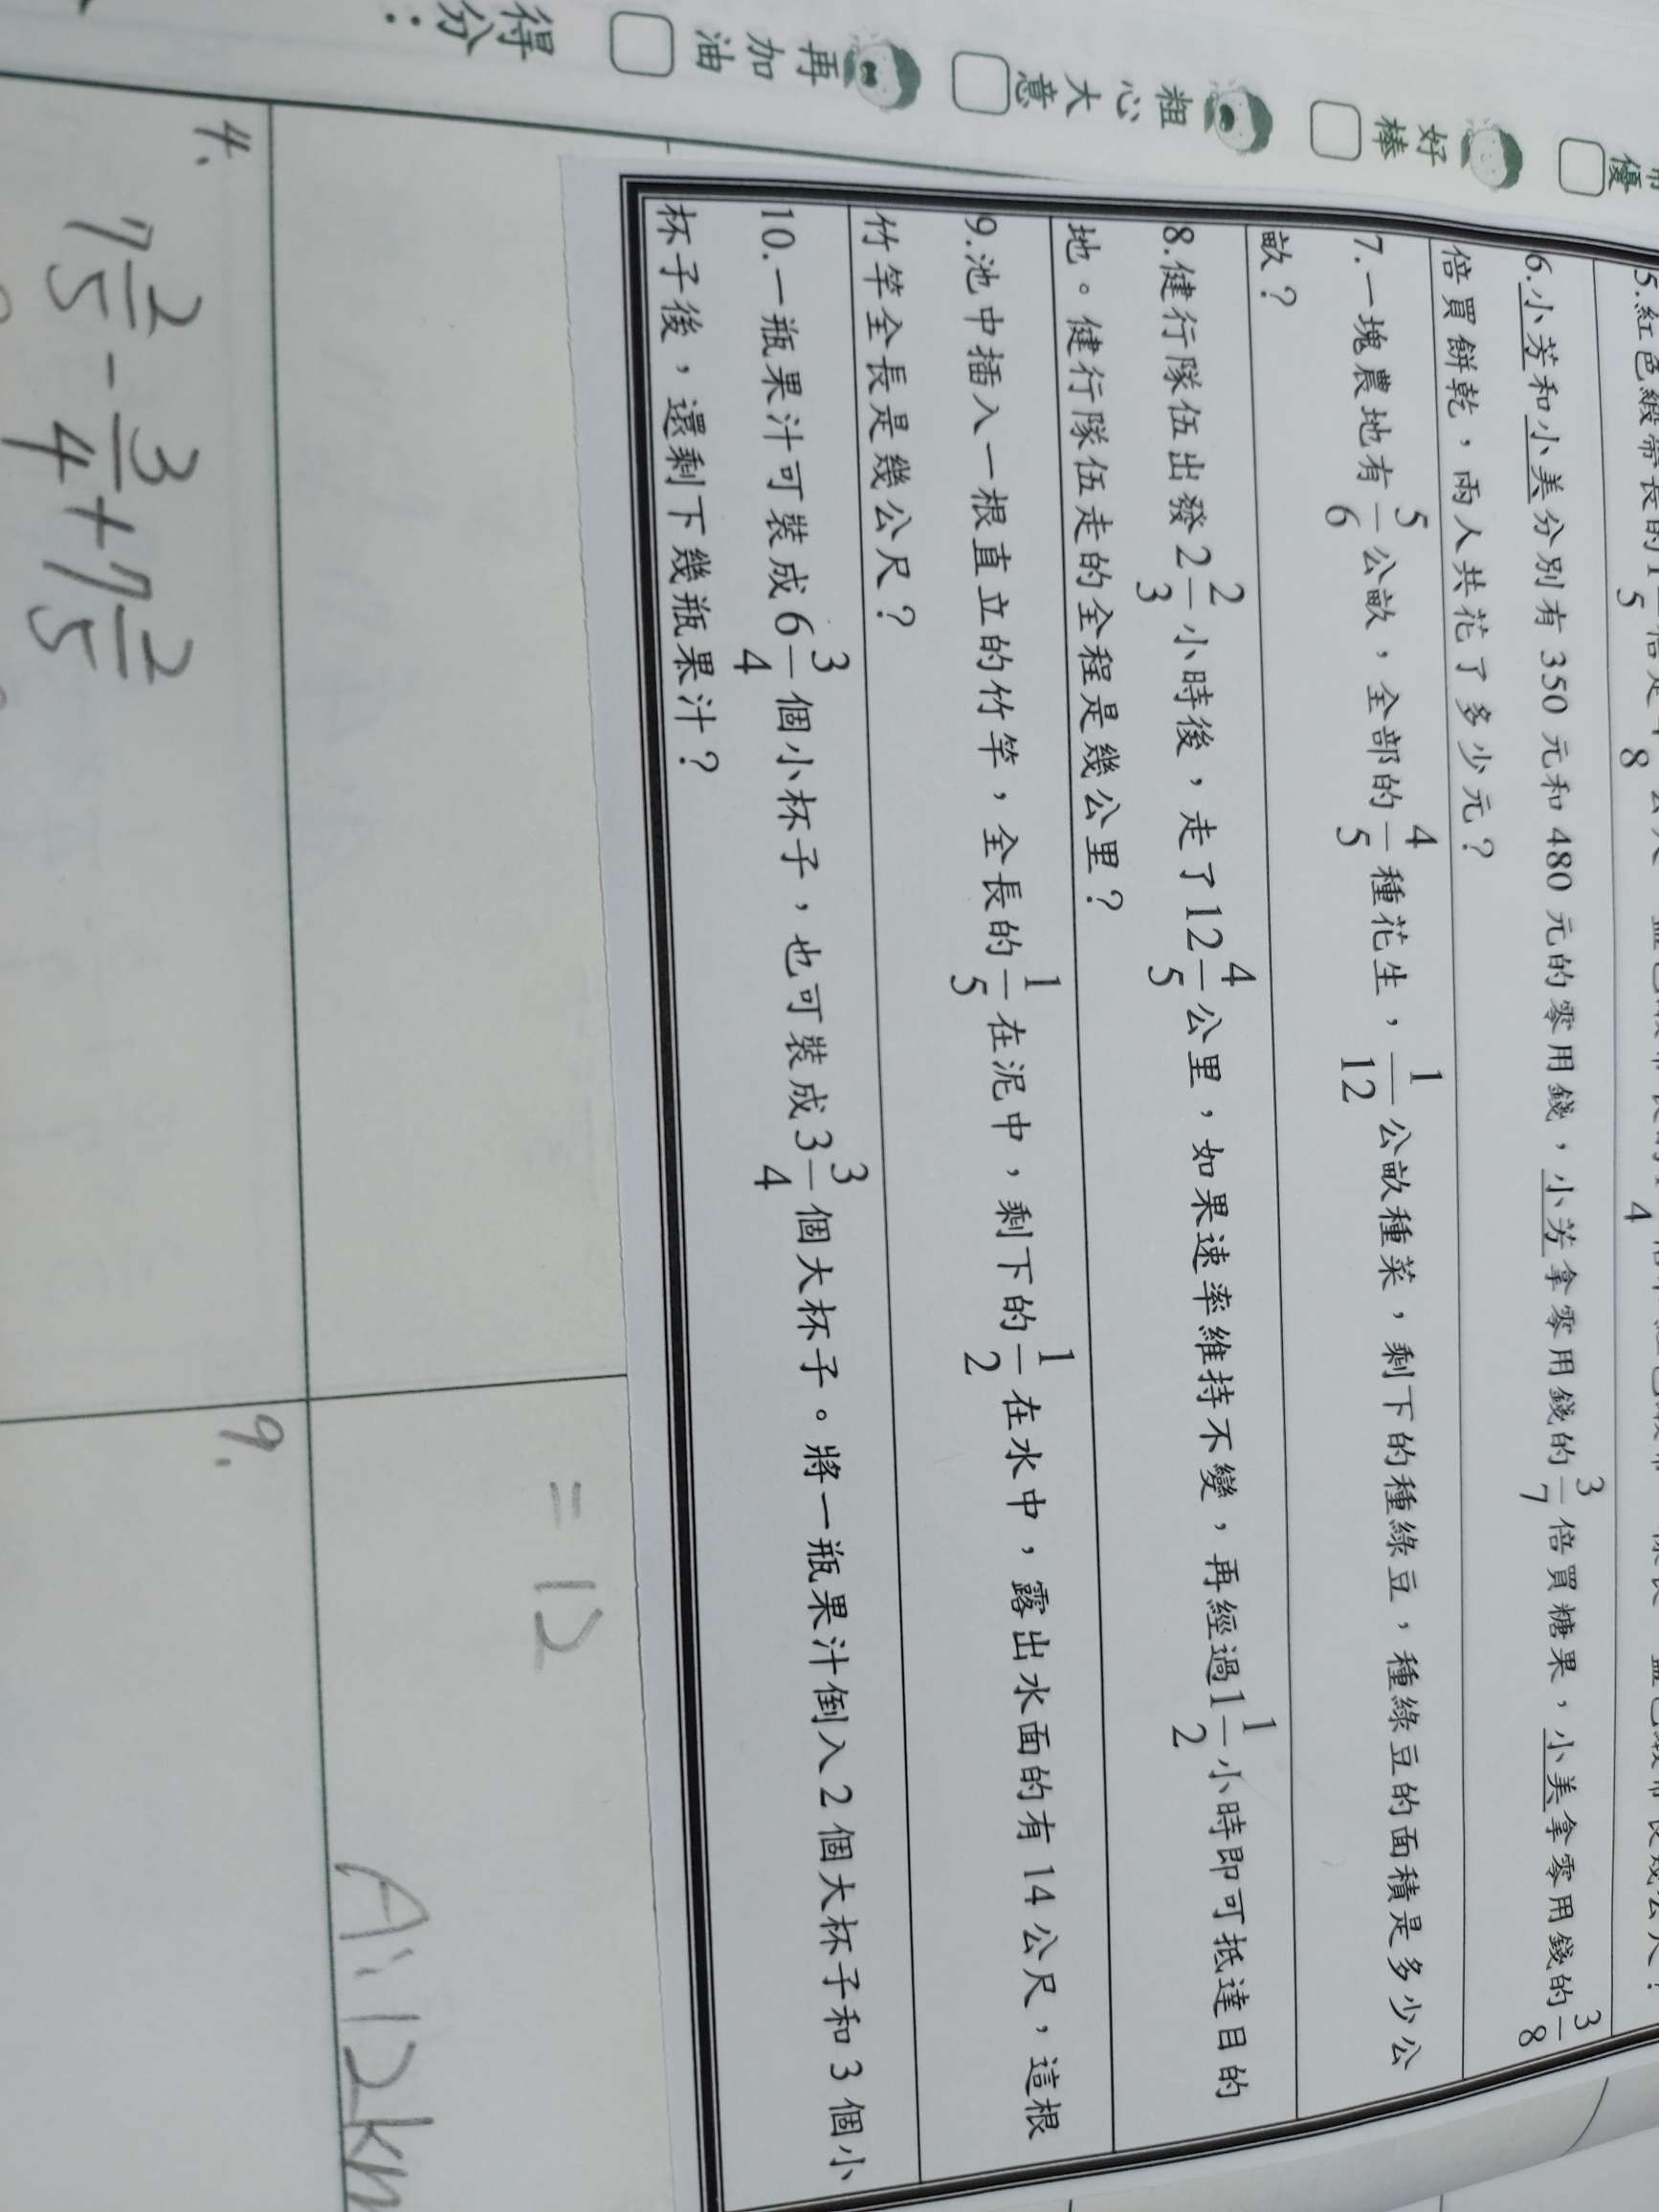 優
好棒
粗心大意
再加油
得分：
6.小芳和小美分別有 350 元和 480 元的零用錢，小芳拿零用錢的3/7倍買糖果，小美拿零用錢的3/8
倍買餅乾，兩人共花了多少元？
7.一塊農地有5/6公畝，全部的4/5種花生，1/12公畝種菜，剩下的種綠豆，種綠豆的面積是多少公
畝？
8.健行隊伍出發2 2/3小時後，走了12 4/5公里，如果速率維持不變，再經過1 1/2小時即可抵達目的
地。健行隊伍走的全程是幾公里？
9.池中插入一根直立的竹竿，全長的1/5在泥中，剩下的1/2在水中，露出水面的有 14 公尺，這根
竹竿全長是幾公尺？
10.一瓶果汁可裝成6 3/4個小杯子，也可裝成3 3/4個大杯子。將一瓶果汁倒入 2 個大杯子和 3 個小
杯子後，還剩下幾瓶果汁？
= 12
A: 12km
4.
7 2/5 - 3/4 + 7 2/5
9.